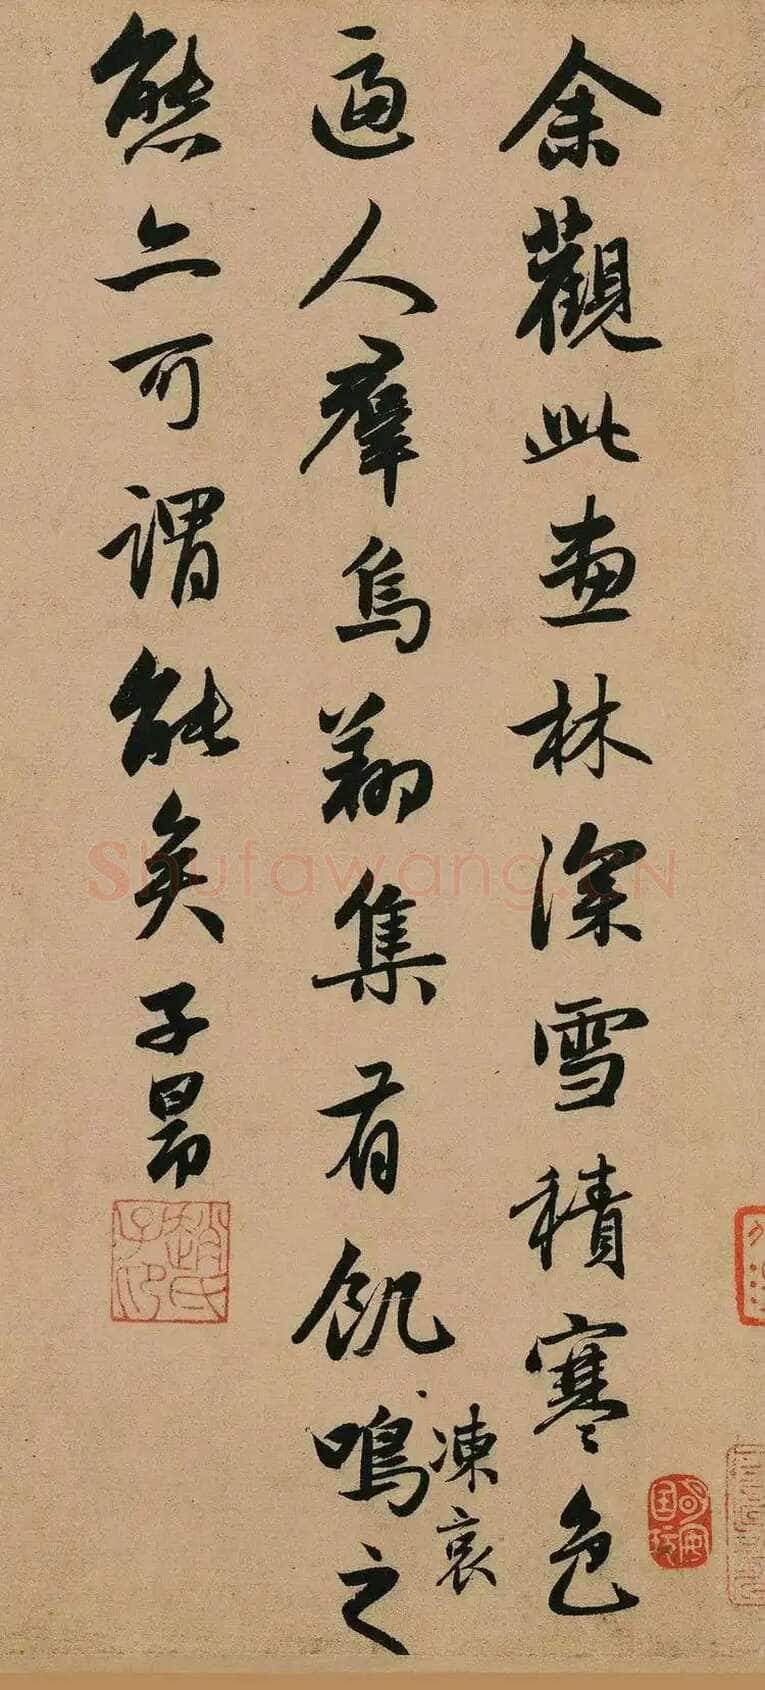 余觀此畫林深雪積寒色
逼人羣烏翔集有飢凍哀鳴之
態亦可謂能矣子昂
趙氏子昂
shufawang.cn